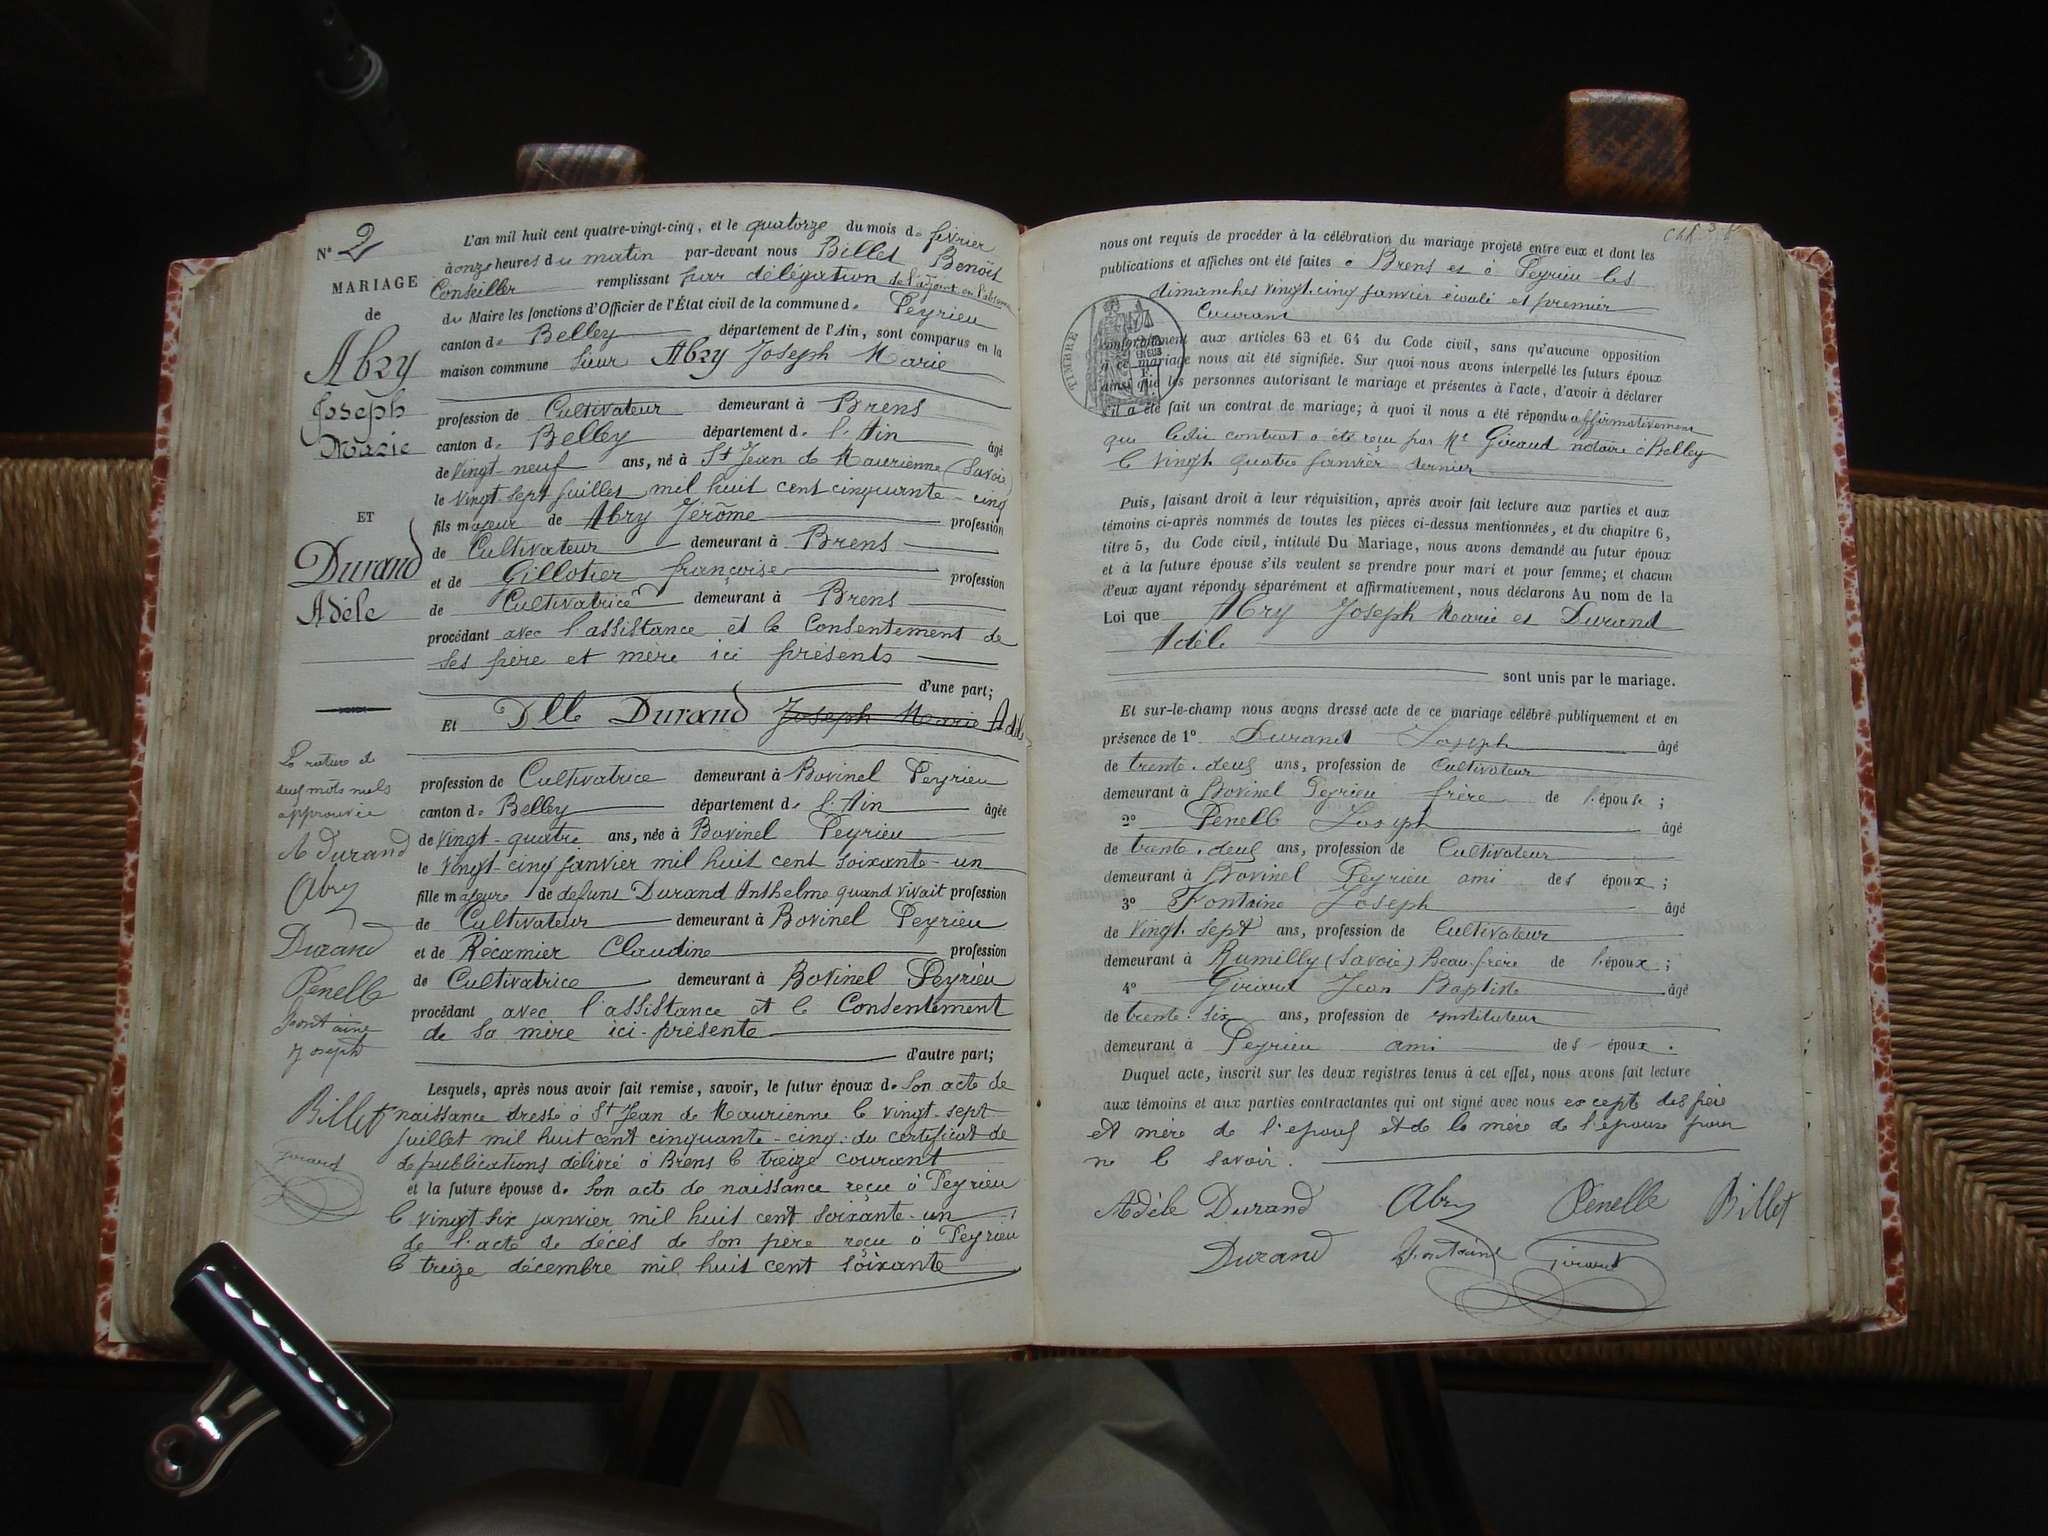 N° 2
MARIAGE
de
Abry
Joseph
Marie
ET
Durand
Adèle
La rature de
deux mots nuls
approuvée
A Durand
Abry
Durand
Penelle
Fontaine
Joseph
Billet
Girard
L'an mil huit cent quatre-vingt-cinq, et le quatorze du mois de février
à onze heures du matin par-devant nous Billet Benoît
Conseiller remplissant par délégation de l'adjoint en l'absence
du Maire les fonctions d'Officier de l'État civil de la commune de Peyrieu
canton de Belley département de l'Ain, sont comparus en la
maison commune Sieur Abry Joseph Marie
profession de Cultivateur demeurant à Brens
canton de Belley département de l'Ain âgé
de vingt-neuf ans, né à St Jean de Maurienne (Savoie)
le vingt sept juillet mil huit cent cinquante-cinq
fils majeur de Abry Jerôme profession
de Cultivateur demeurant à Brens
et de Gillotier françoise profession
de Cultivatrice demeurant à Brens
procédant avec l'assistance et le Consentement de
ses père et mère ici présents
d'une part;
Et Dlle Durand Joseph Marie Adèle
profession de Cultivatrice demeurant à Bovinel Peyrieu
canton de Belley département de l'Ain âgée
de vingt-quatre ans, née à Bovinel Peyrieu
le vingt-cinq janvier mil huit cent soixante-un
fille majeure de defunt Durand Anthelme quand vivait profession
de Cultivateur demeurant à Bovinel Peyrieu
et de Récamier Claudine profession
de Cultivatrice demeurant à Bovinel Peyrieu
procédant avec l'assistance et le Consentement
de sa mère ici-présente
d'autre part;
Lesquels, après nous avoir fait remise, savoir, le futur époux de Son acte de
naissance dressé à St Jean de Maurienne le vingt-sept
juillet mil huit cent cinquante-cinq. du certificat de
de publications délivré à Brens le treize courant
et la future épouse de Son acte de naissance reçu à Peyrieu
le vingt six janvier mil huit cent soixante-un;
de l'acte de décès de son père reçu à Peyrieu
le treize décembre mil huit cent soixante
nous ont requis de procéder à la célébration du mariage projeté entre eux et dont les
publications et affiches ont été faites à Brens et à Peyrieu les
dimanches vingt-cinq janvier écoulé et premier
Courant
TIMBRE
conformément aux articles 63 et 64 du Code civil, sans qu'aucune opposition
à ce mariage nous ait été signifiée. Sur quoi nous avons interpellé les futurs époux
ainsi que les personnes autorisant le mariage et présentes à l'acte, d'avoir à déclarer
s'il a été fait un contrat de mariage; à quoi il nous a été répondu affirmativement
que ledit contrat a été reçu par Me Giraud notaire à Belley
le vingt quatre janvier dernier
Puis, faisant droit à leur réquisition, après avoir fait lecture aux parties et aux
témoins ci-après nommés de toutes les pièces ci-dessus mentionnées, et du chapitre 6,
titre 5, du Code civil, intitulé Du Mariage, nous avons demandé au futur époux
et à la future épouse s'ils veulent se prendre pour mari et pour femme; et chacun
d'eux ayant répondy séparément et affirmativement, nous déclarons Au nom de la
Loi que Abry Joseph Marie et Durand
Adèle
sont unis par le mariage.
Et sur-le-champ nous avons dressé acte de ce mariage célébré publiquement et en
présence de 1° Durand Joseph âgé
de trente-deux ans, profession de Cultivateur
demeurant à Bovinel Peyrieu frère de l'épouse;
2° Penelle Joseph âgé
de trente-deux ans, profession de Cultivateur
demeurant à Bovinel Peyrieu ami des époux;
3° Fontaine Joseph âgé
de vingt-sept ans, profession de Cultivateur
demeurant à Rumilly (Savoie) Beau-frère de l'époux;
4° Girard Jean Baptiste âgé
de trente-six ans, profession de instituteur
demeurant à Peyrieu ami des époux.
Duquel acte, inscrit sur les deux registres tenus à cet effet, nous avons fait lecture
aux témoins et aux parties contractantes qui ont signé avec nous excepté des père
et mère de l'époux et de la mère de l'épouse pour
ne le savoir.
Adèle Durand Abry Penelle Billet
Durand Fontaine Girard